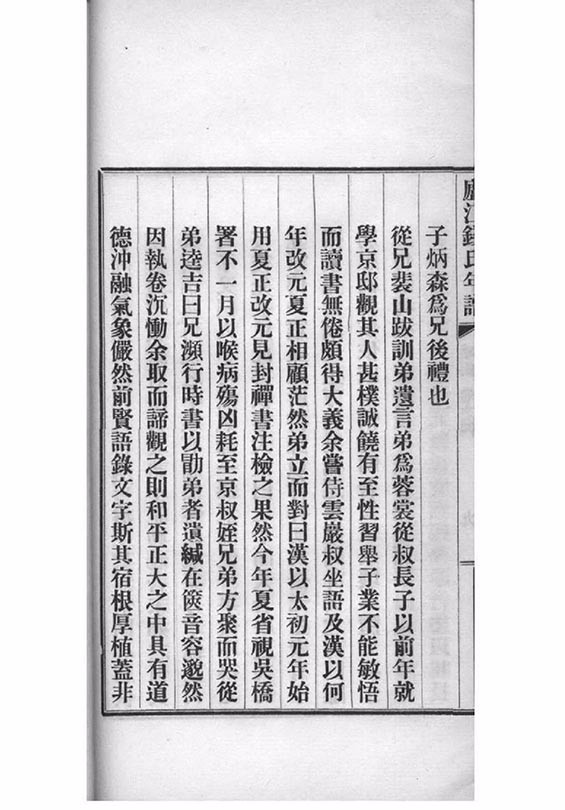 廬江錢氏年譜
子炳森爲兄後禮也
從兄裴山跋訓弟遺言弟爲蓉裳從叔長子以前年就
學京邸觀其人甚樸誠饒有至性習舉子業不能敏悟
而讀書無倦頗得大義余嘗侍雲巖叔坐語及漢以何
年改元夏正相顧茫然弟立而對曰漢以太初元年始
用夏正改元見封禪書注檢之果然今年夏省視吳橋
署不一月以喉病殤凶耗至京叔姪兄弟方聚而哭從
弟逵吉曰兄瀕行時書以勖弟者遺緘在篋音容邈然
因執卷沉慟余取而諦觀之則和平正大之中具有道
德沖融氣象儼然前賢語錄文字斯其宿根厚植蓋非